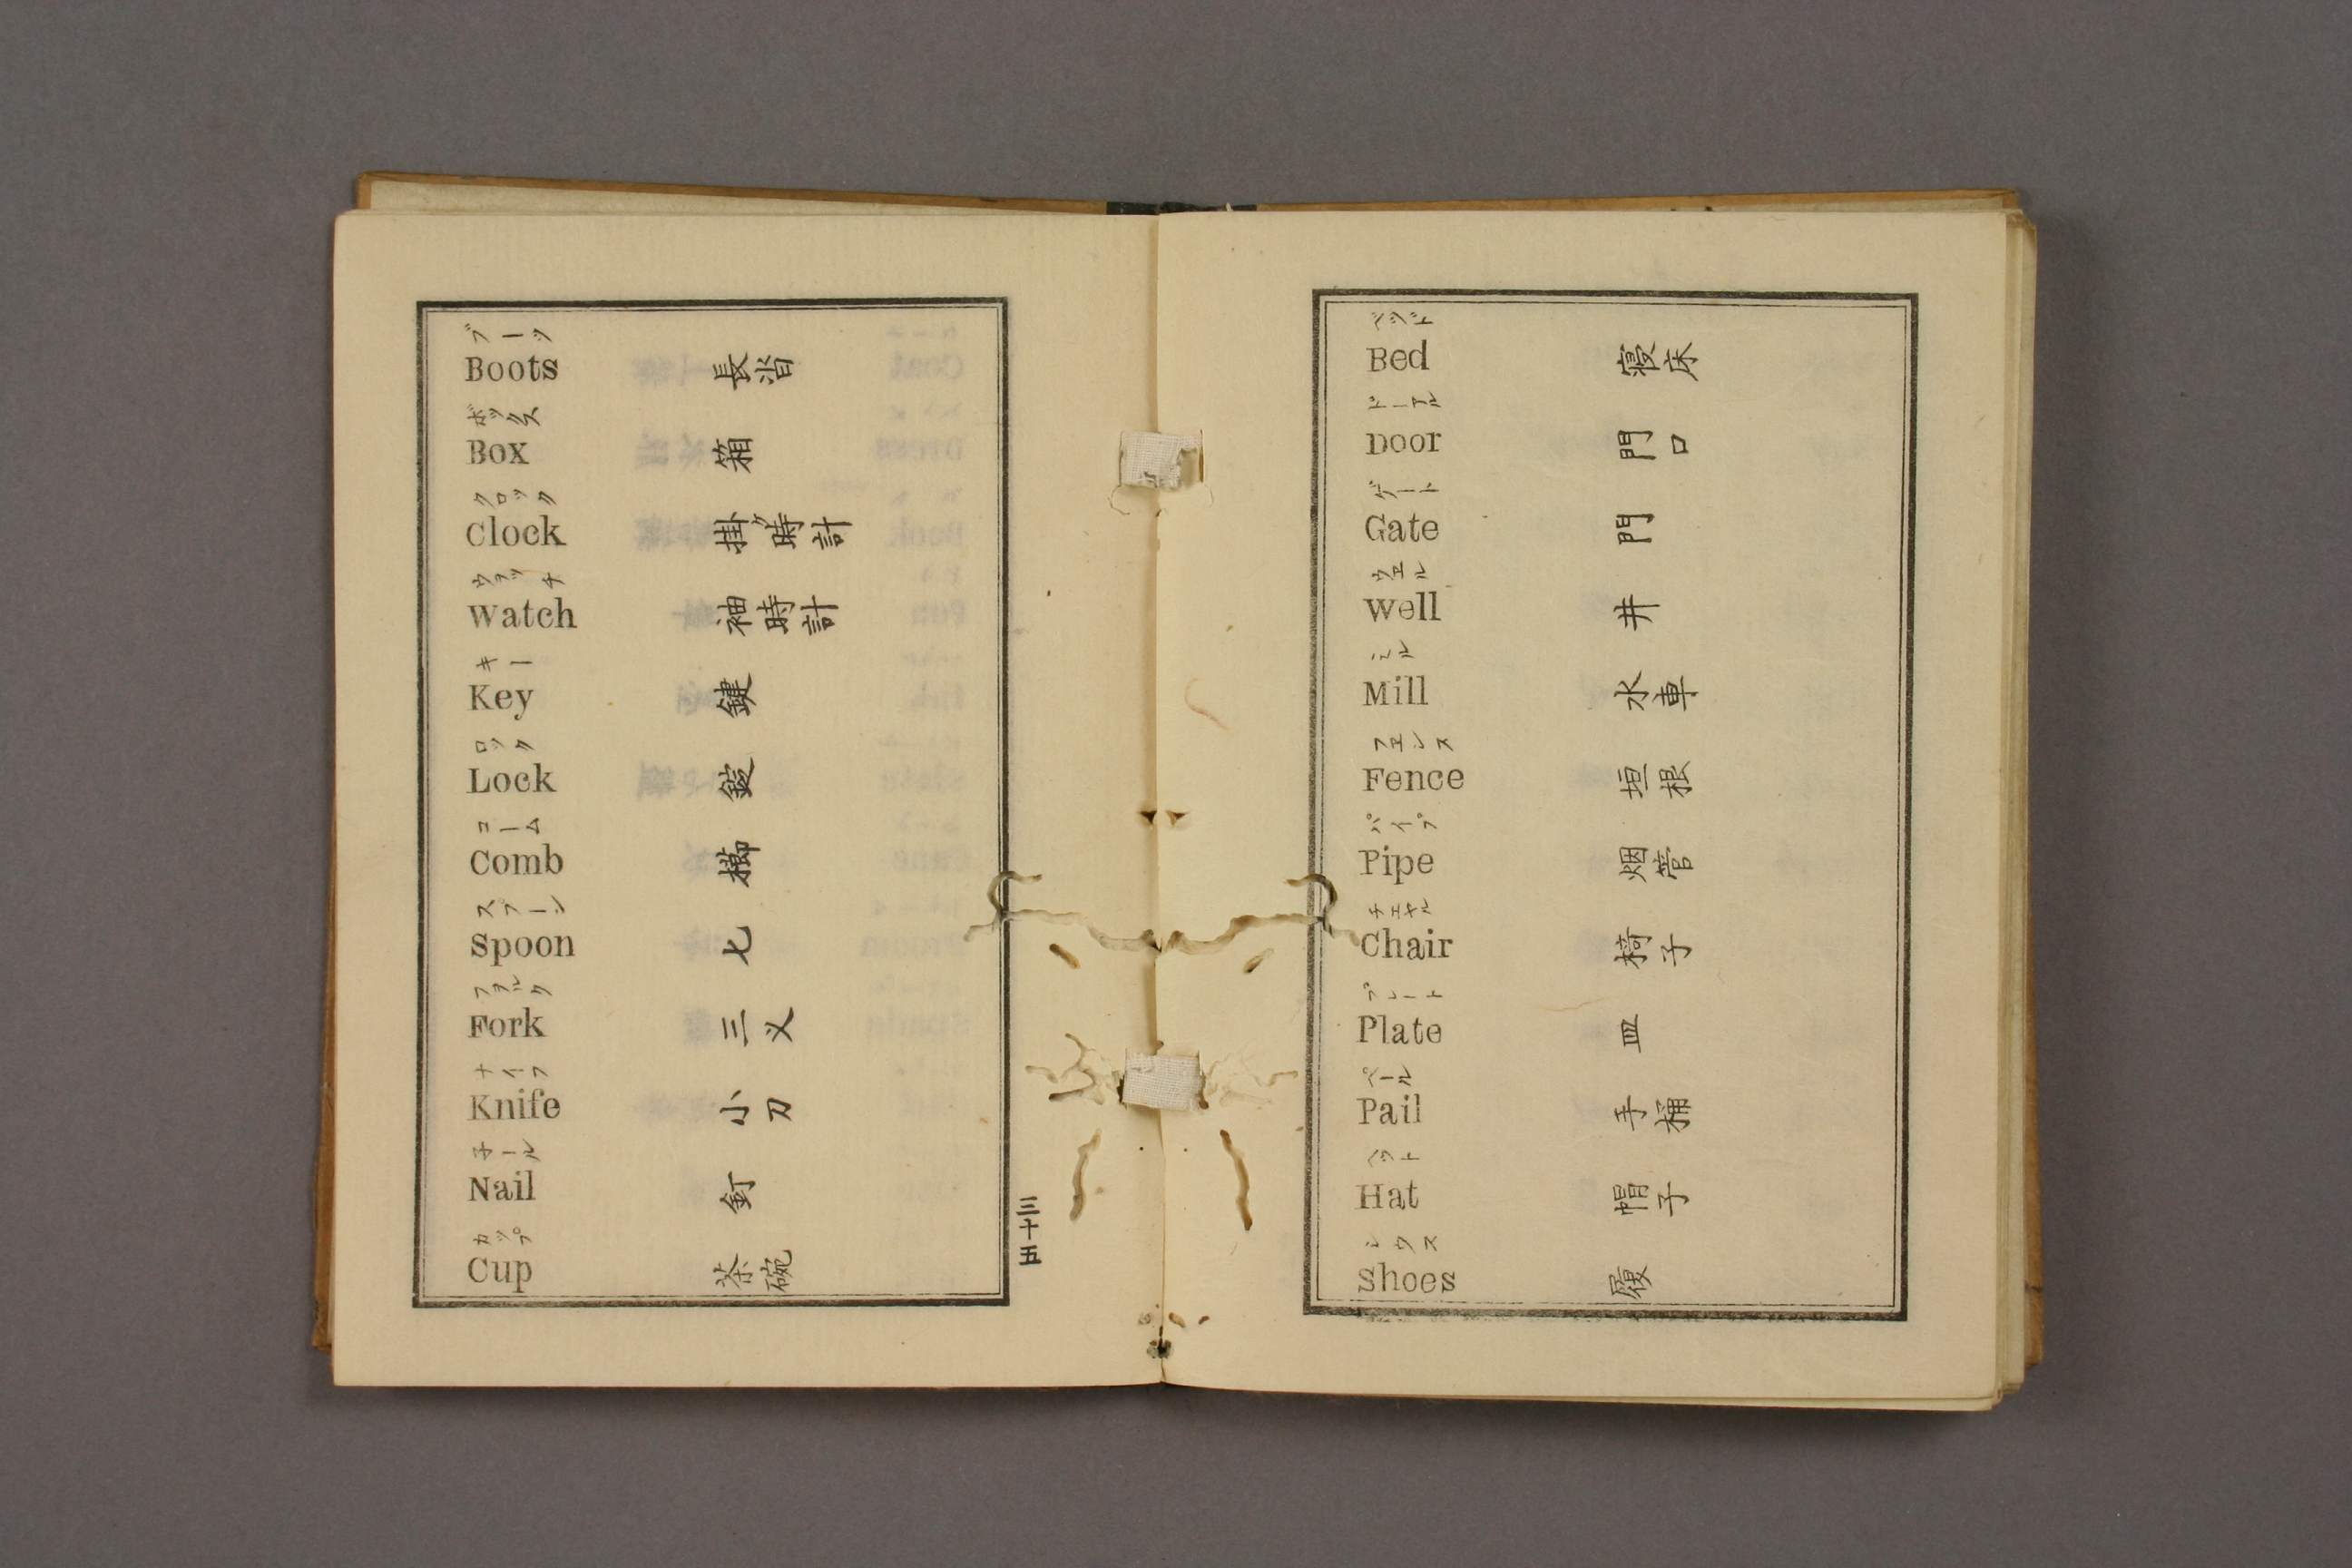 ブーツ
Boots 長沓
ボックス
Box 箱
クロック
Clock 掛ケ時計
ウヲッチ
Watch 袖時計
キー
Key 鍵
ロック
Lock 錠
コーム
Comb 櫛
スプーン
Spoon 匕
フヲルク
Fork 三叉
ナイフ
Knife 小刀
子ール
Nail 釘
カップ
Cup 茶碗
三十五
ベッド
Bed 寝床
ドーアル
Door 門口
ゲート
Gate 門
ウエル
Well 井
ミル
Mill 水車
フエンス
Fence 垣根
パイプ
Pipe 烟管
チエヤル
Chair 椅子
プレート
Plate 皿
ペール
Pail 手桶
ヘット
Hat 帽子
シウス
Shoes 履